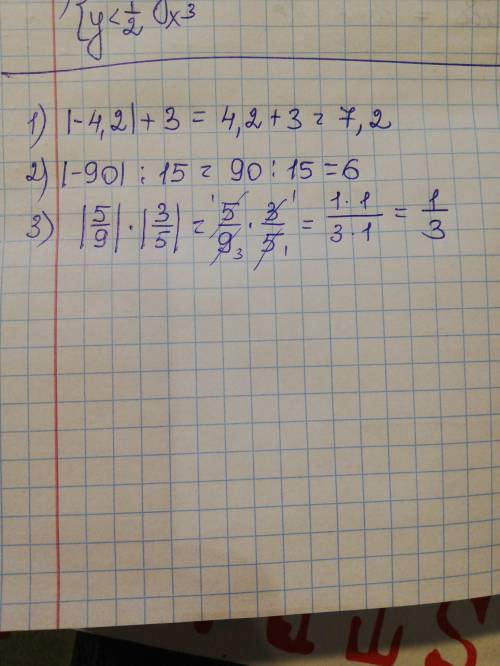 {y < 1/2 0x³
1) |-4,2| + 3 = 4,2 + 3 = 7,2
2) |-90| : 15 = 90 : 15 = 6
3) |5/9| · |3/5| = 5/9 · 3/5 = 1·1/3·1 = 1/3